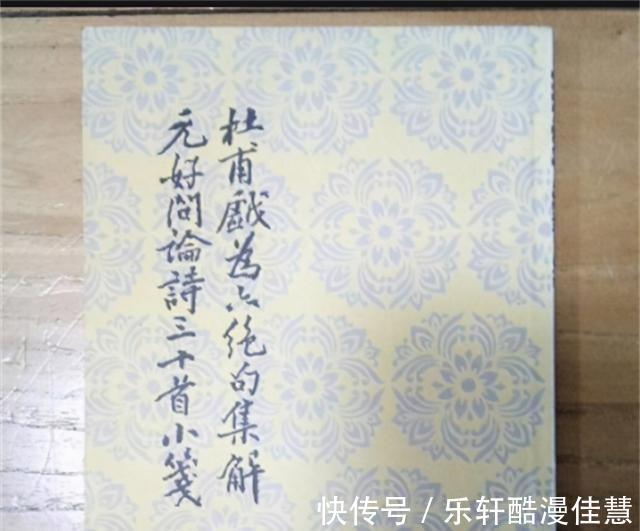 杜甫戲為六绝句集解
元好问論詩三十首小箋
快传号／乐轩酷漫佳慧